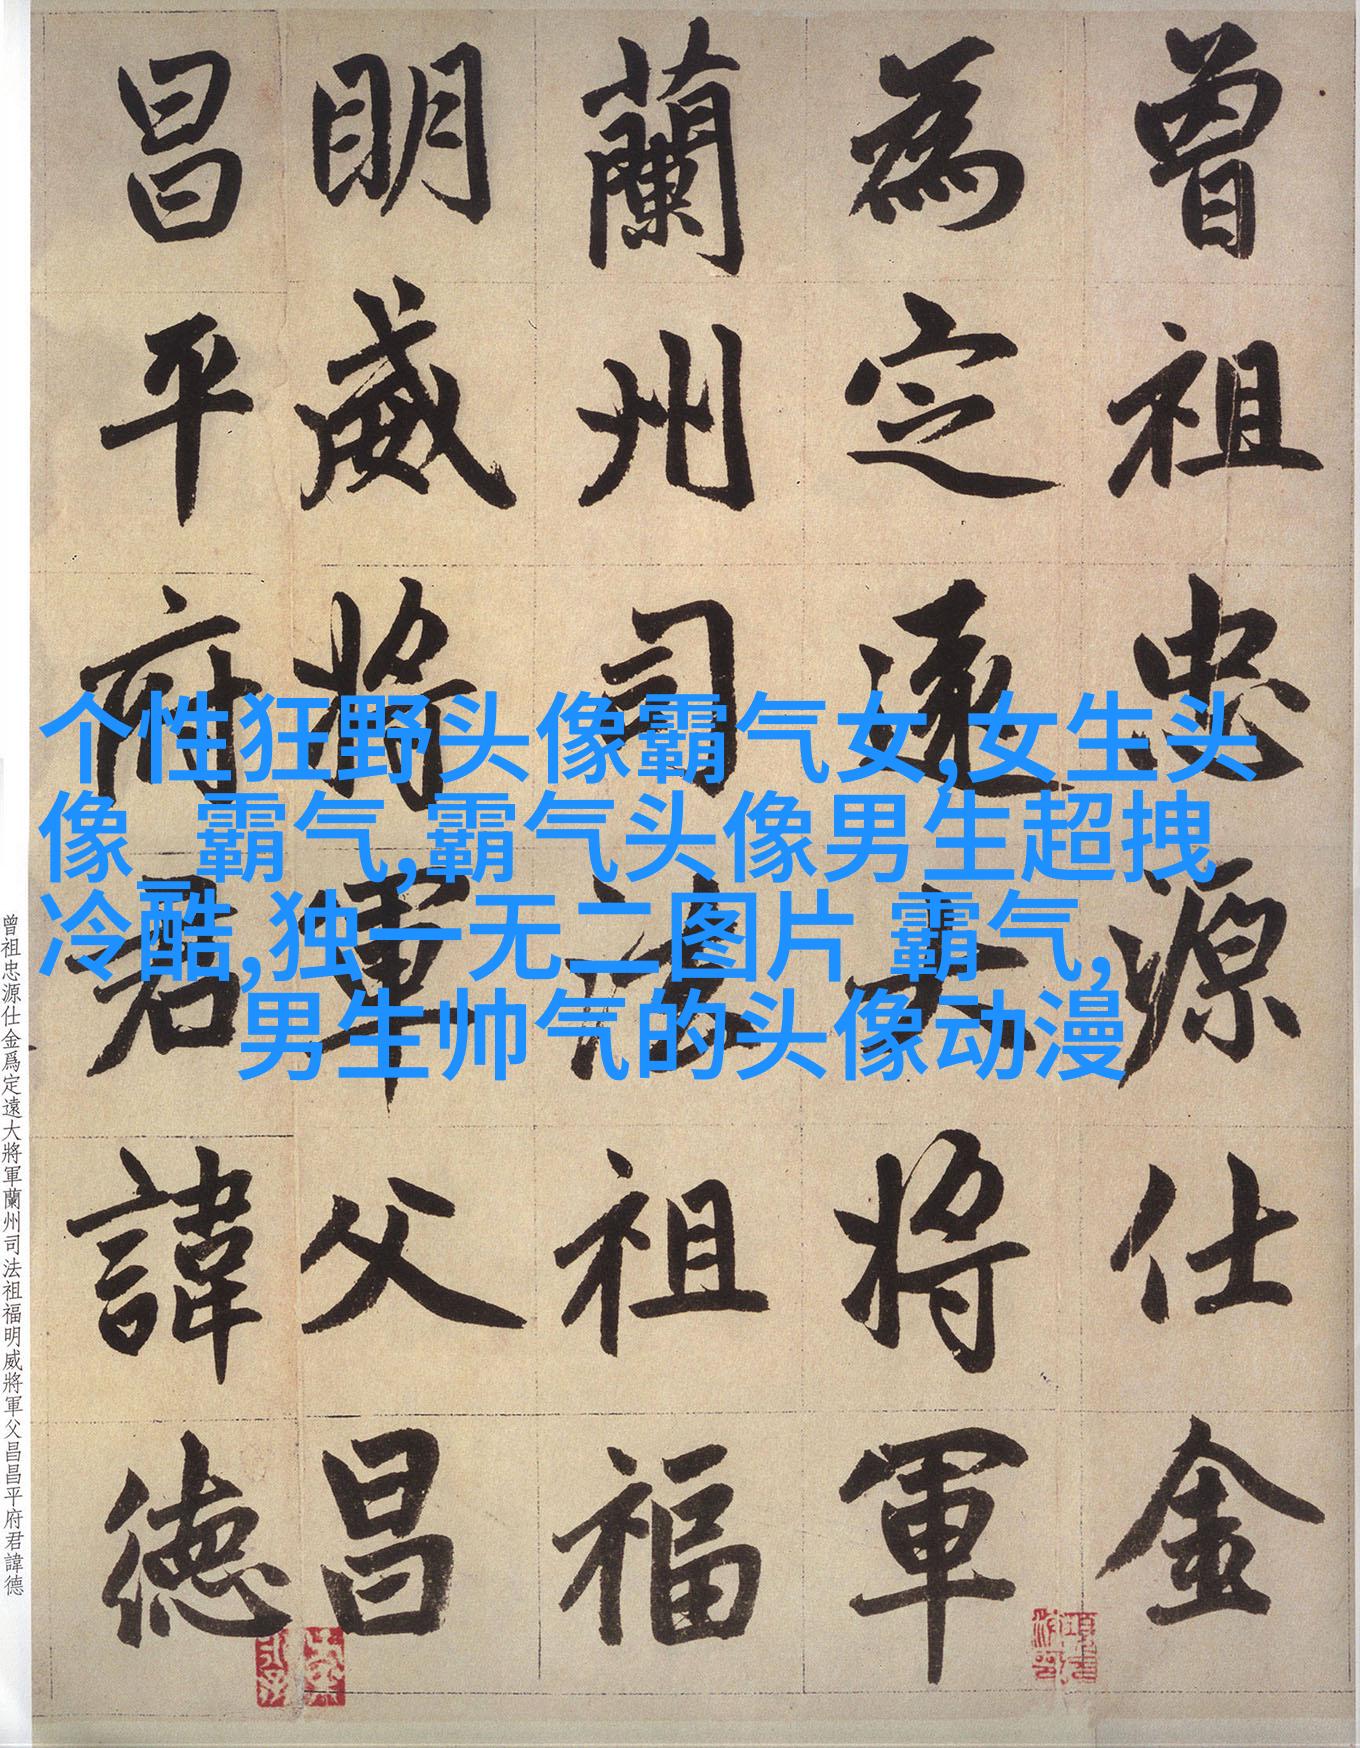 曾祖忠源仕金
為定遠大將軍
蘭州司法祖福
明威將軍父昌
昌平府君諱德
个性狂野头像霸气女,女生头
像_霸气,霸气头像男生超拽
冷酷,独一无二图片 霸气,
男生帅气的头像动漫
曾祖忠源仕金爲定遠大將軍蘭州司法祖福明威將軍父昌昌平府君諱德